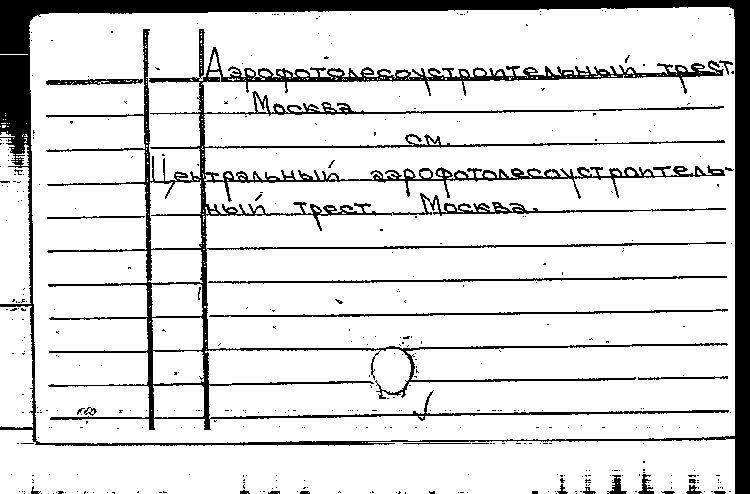 Аэрофотолесоустроительный трест.
Москва.
см.
Центральный аэрофотолесоустроитель-
ный трест. Москва.